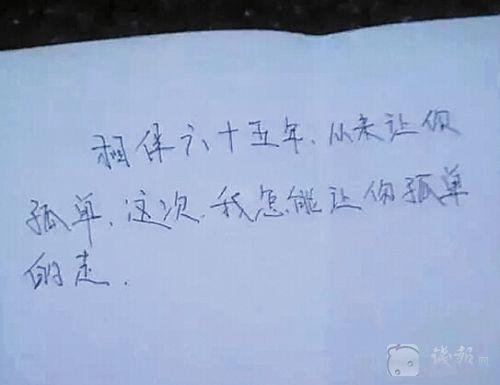 相伴六十五年、从未让你
孤单、这次、我怎能让你孤单
的走.
钱报网